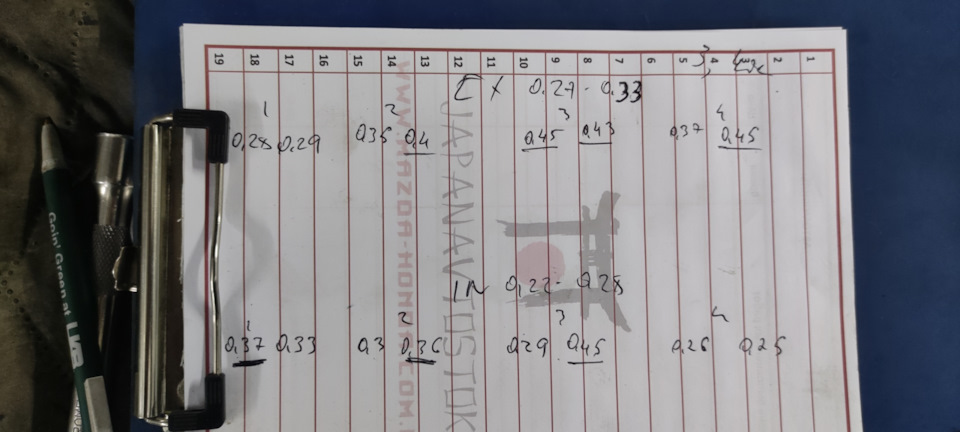 19 18 17 16 15 14 13 12 11 10 9 8 7 6 5 4 3 2 1
EX 0.27 - 0.33
1 2 3 4
0,28 0,29 0,35 0,4 0,45 0,43 0,37 0,45
IN 0,22 - 0,28
1 2 3 4
0,37 0,33 0,3 0,36 0,29 0,45 0,26 0,25
WWW.MAZDA-HONDA.COM.
JAPANAVTOSTOK
Goin' Green at